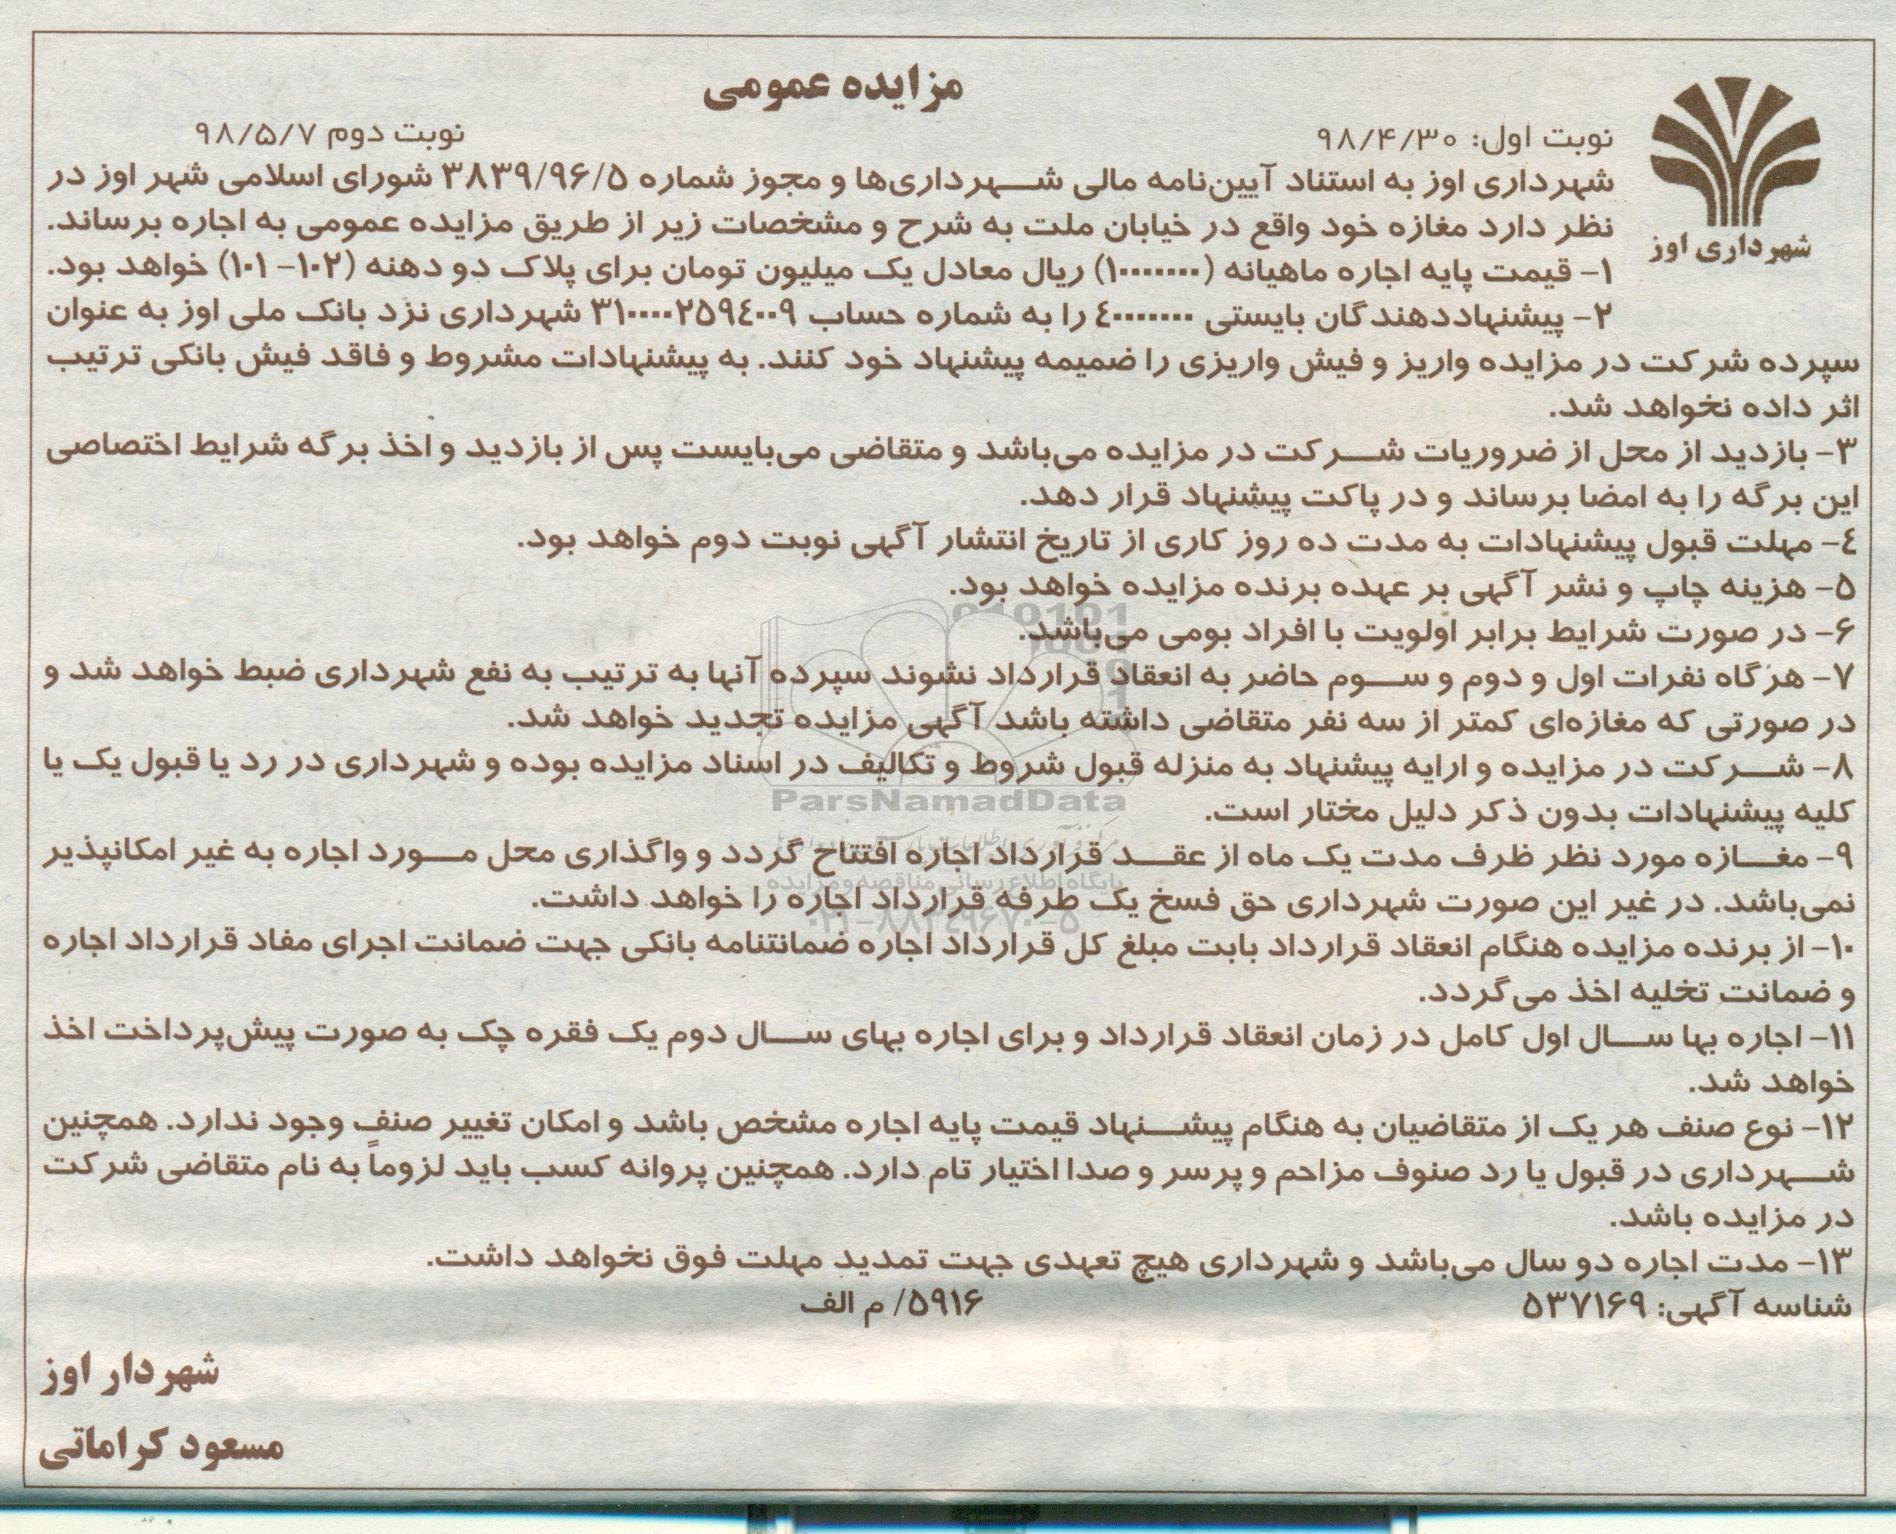 مزایده عمومی
نوبت اول: ۹۸/۴/۳۰
نوبت دوم ۹۸/۵/۷
شهرداری اوز
شهرداری اوز به استناد آیین‌نامه مالی شهرداری‌ها و مجوز شماره ۳۸۳۹/۹۶/۵ شورای اسلامی شهر اوز در
نظر دارد مغازه خود واقع در خیابان ملت به شرح و مشخصات زیر از طریق مزایده عمومی به اجاره برساند.
۱- قیمت پایه اجاره ماهیانه (۱۰۰۰۰۰۰۰) ریال معادل یک میلیون تومان برای پلاک دو دهنه (۱۰۲- ۱۰۱) خواهد بود.
۲- پیشنهاددهندگان بایستی ۴۰۰۰۰۰۰۰ را به شماره حساب ۳۱۰۰۰۰۲۵۹۴۰۰۹ شهرداری نزد بانک ملی اوز به عنوان
سپرده شرکت در مزایده واریز و فیش واریزی را ضمیمه پیشنهاد خود کنند. به پیشنهادات مشروط و فاقد فیش بانکی ترتیب
اثر داده نخواهد شد.
۳- بازدید از محل از ضروریات شرکت در مزایده می‌باشد و متقاضی می‌بایست پس از بازدید و اخذ برگه شرایط اختصاصی
این برگه را به امضا برساند و در پاکت پیشنهاد قرار دهد.
۴- مهلت قبول پیشنهادات به مدت ده روز کاری از تاریخ انتشار آگهی نوبت دوم خواهد بود.
۵- هزینه چاپ و نشر آگهی بر عهده برنده مزایده خواهد بود.
۶- در صورت شرایط برابر اولویت با افراد بومی می‌باشد.
۷- هرگاه نفرات اول و دوم و سوم حاضر به انعقاد قرارداد نشوند سپرده آنها به ترتیب به نفع شهرداری ضبط خواهد شد و
در صورتی که مغازه‌ای کمتر از سه نفر متقاضی داشته باشد آگهی مزایده تجدید خواهد شد.
۸- شرکت در مزایده و ارایه پیشنهاد به منزله قبول شروط و تکالیف در اسناد مزایده بوده و شهرداری در رد یا قبول یک یا
ParsNamadData
کلیه پیشنهادات بدون ذکر دلیل مختار است.
۹- مغازه مورد نظر ظرف مدت یک ماه از عقد قرارداد اجاره افتتاح گردد و واگذاری محل مورد اجاره به غیر امکانپذیر
پایگاه اطلاع رسانی مناقصه و مزایده
نمی‌باشد. در غیر این صورت شهرداری حق فسخ یک طرفه قرارداد اجاره را خواهد داشت.
۰۲۱-۸۸۳۴۹۶۷۰-۵
۱۰- از برنده مزایده هنگام انعقاد قرارداد بابت مبلغ کل قرارداد اجاره ضمانتنامه بانکی جهت ضمانت اجرای مفاد قرارداد اجاره
و ضمانت تخلیه اخذ می‌گردد.
۱۱- اجاره بها سال اول کامل در زمان انعقاد قرارداد و برای اجاره بهای سال دوم یک فقره چک به صورت پیش‌پرداخت اخذ
خواهد شد.
۱۲- نوع صنف هر یک از متقاضیان به هنگام پیشنهاد قیمت پایه اجاره مشخص باشد و امکان تغییر صنف وجود ندارد. همچنین
شهرداری در قبول یا رد صنوف مزاحم و پرسر و صدا اختیار تام دارد. همچنین پروانه کسب باید لزوماً به نام متقاضی شرکت
در مزایده باشد.
۱۳- مدت اجاره دو سال می‌باشد و شهرداری هیچ تعهدی جهت تمدید مهلت فوق نخواهد داشت.
شناسه آگهی: ۵۳۷۱۶۹
۵۹۱۶/ م الف
شهردار اوز
مسعود کراماتی